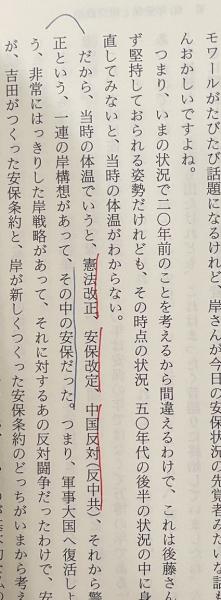 モワールがたびたび話題になるけれど、岸さんが今日の安保状況の先覚者みたいな話も
んおかしいですよね。
つまり、いまの状況で二〇年前のことを考えるから間違えるわけで、これは後藤さん
ず堅持しておられる姿勢だけれども、その時点の状況、五〇年代の後半の状況の中に身
直してみないと、当時の体温がわからない。
だから、当時の体温でいうと、憲法改正、安保改定、中国反対(反中共)、それから警
正という、一連の岸構想があって、その中の安保だった。つまり、軍事大国へ復活しよ
う、非常にはっきりした岸戦略があって、それに対するあの反対闘争だったわけで、安
が、吉田がつくった安保条約と、岸が新しくつくった安保条約のどっちがいまから考え